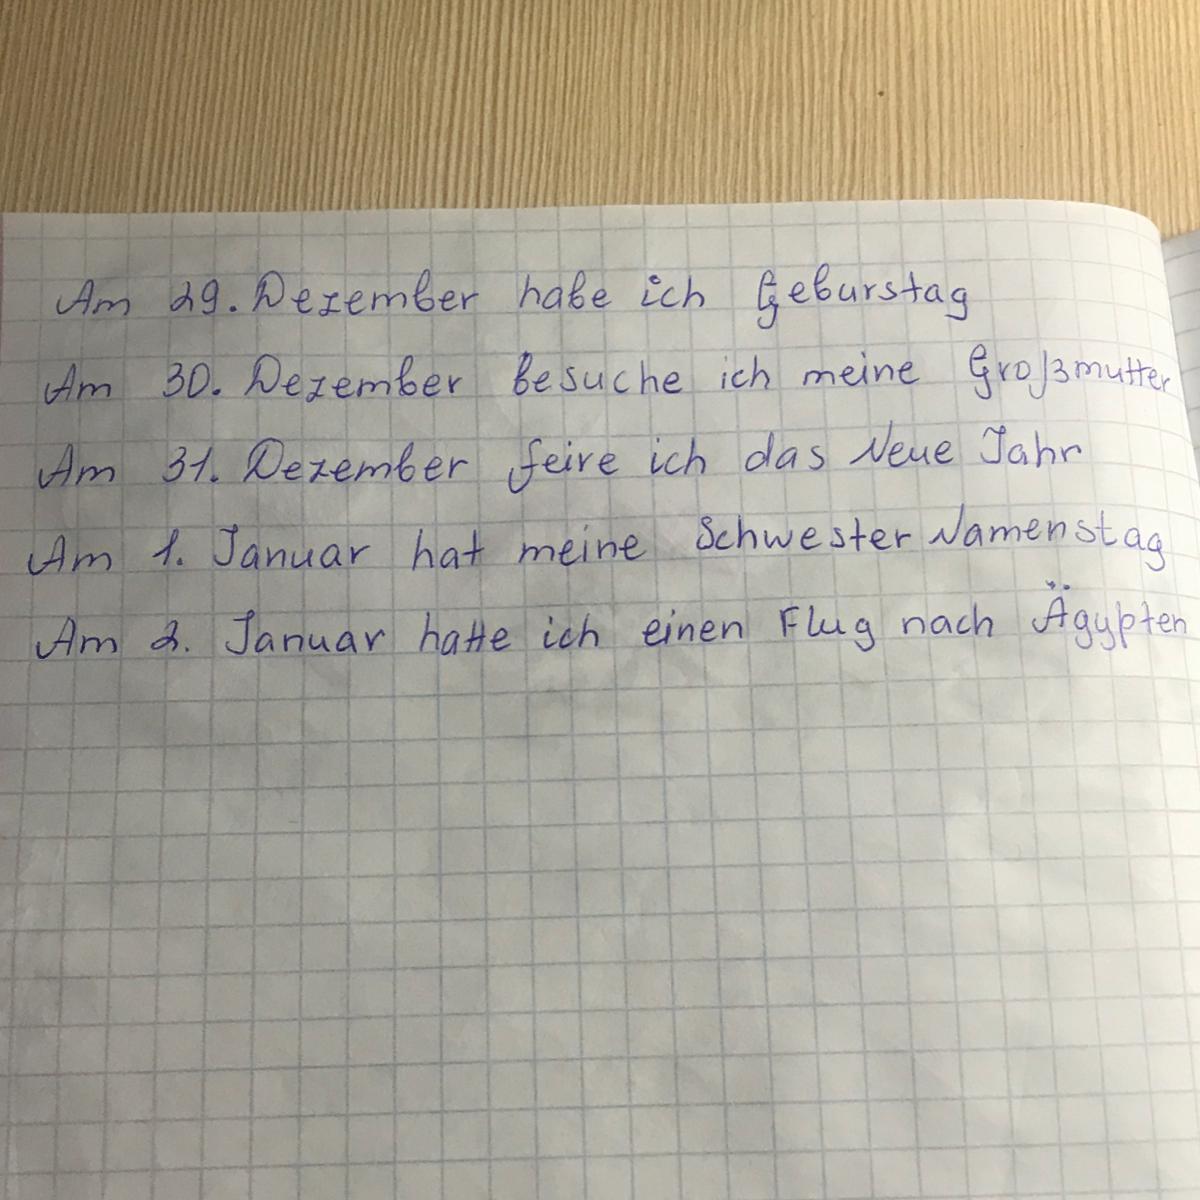 Am 29. Dezember habe ich Geburstag
Am 30. Dezember besuche ich meine Großmutter
Am 31. Dezember feire ich das Neue Jahr
Am 1. Januar hat meine Schwester Namenstag
Am 2. Januar hatte ich einen Flug nach Ägypten